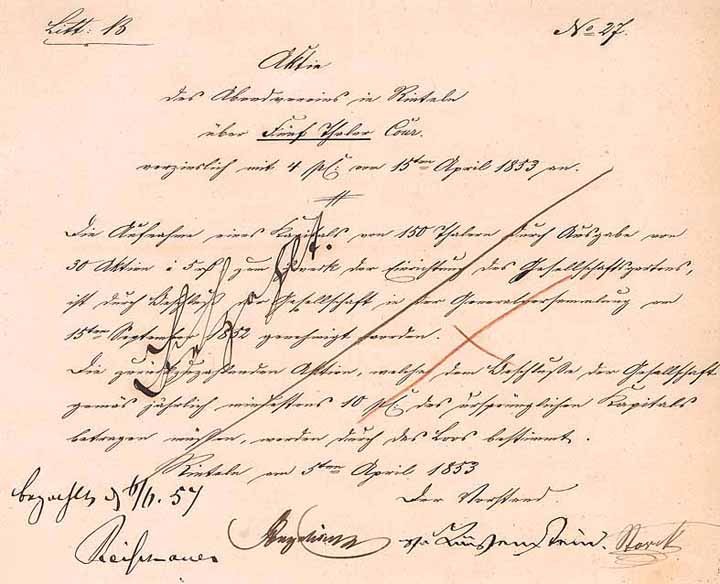 Litt: B
No 27.
Aktie
des Abendvereins in Rinteln
über Fünf Thaler Cour.
verzinslich mit 4 pC vom 15ten April 1853 an.
Die Aufnahme eines Kapitals von 150 Thalern durch Ausgabe von
30 Aktien à 5 zum Zweck der Einrichtung des Gesellschaftsgartens,
ist durch Beschluß der Gesellschaft in der Generalversammlung am
15ten September 1852 genehmigt worden.
Die zurückzuzahlenden Aktien, welche dem Beschlusse der Gesellschaft
gemäs jährlich mindestens 10 pC des ursprünglichen Kapitals
betragen müssen, werden durch das Loos bestimmt.
Rinteln am 5ten April 1853
Der Vorstand.
Bezahlt.
bezahlt d 6/11. 57
Storck